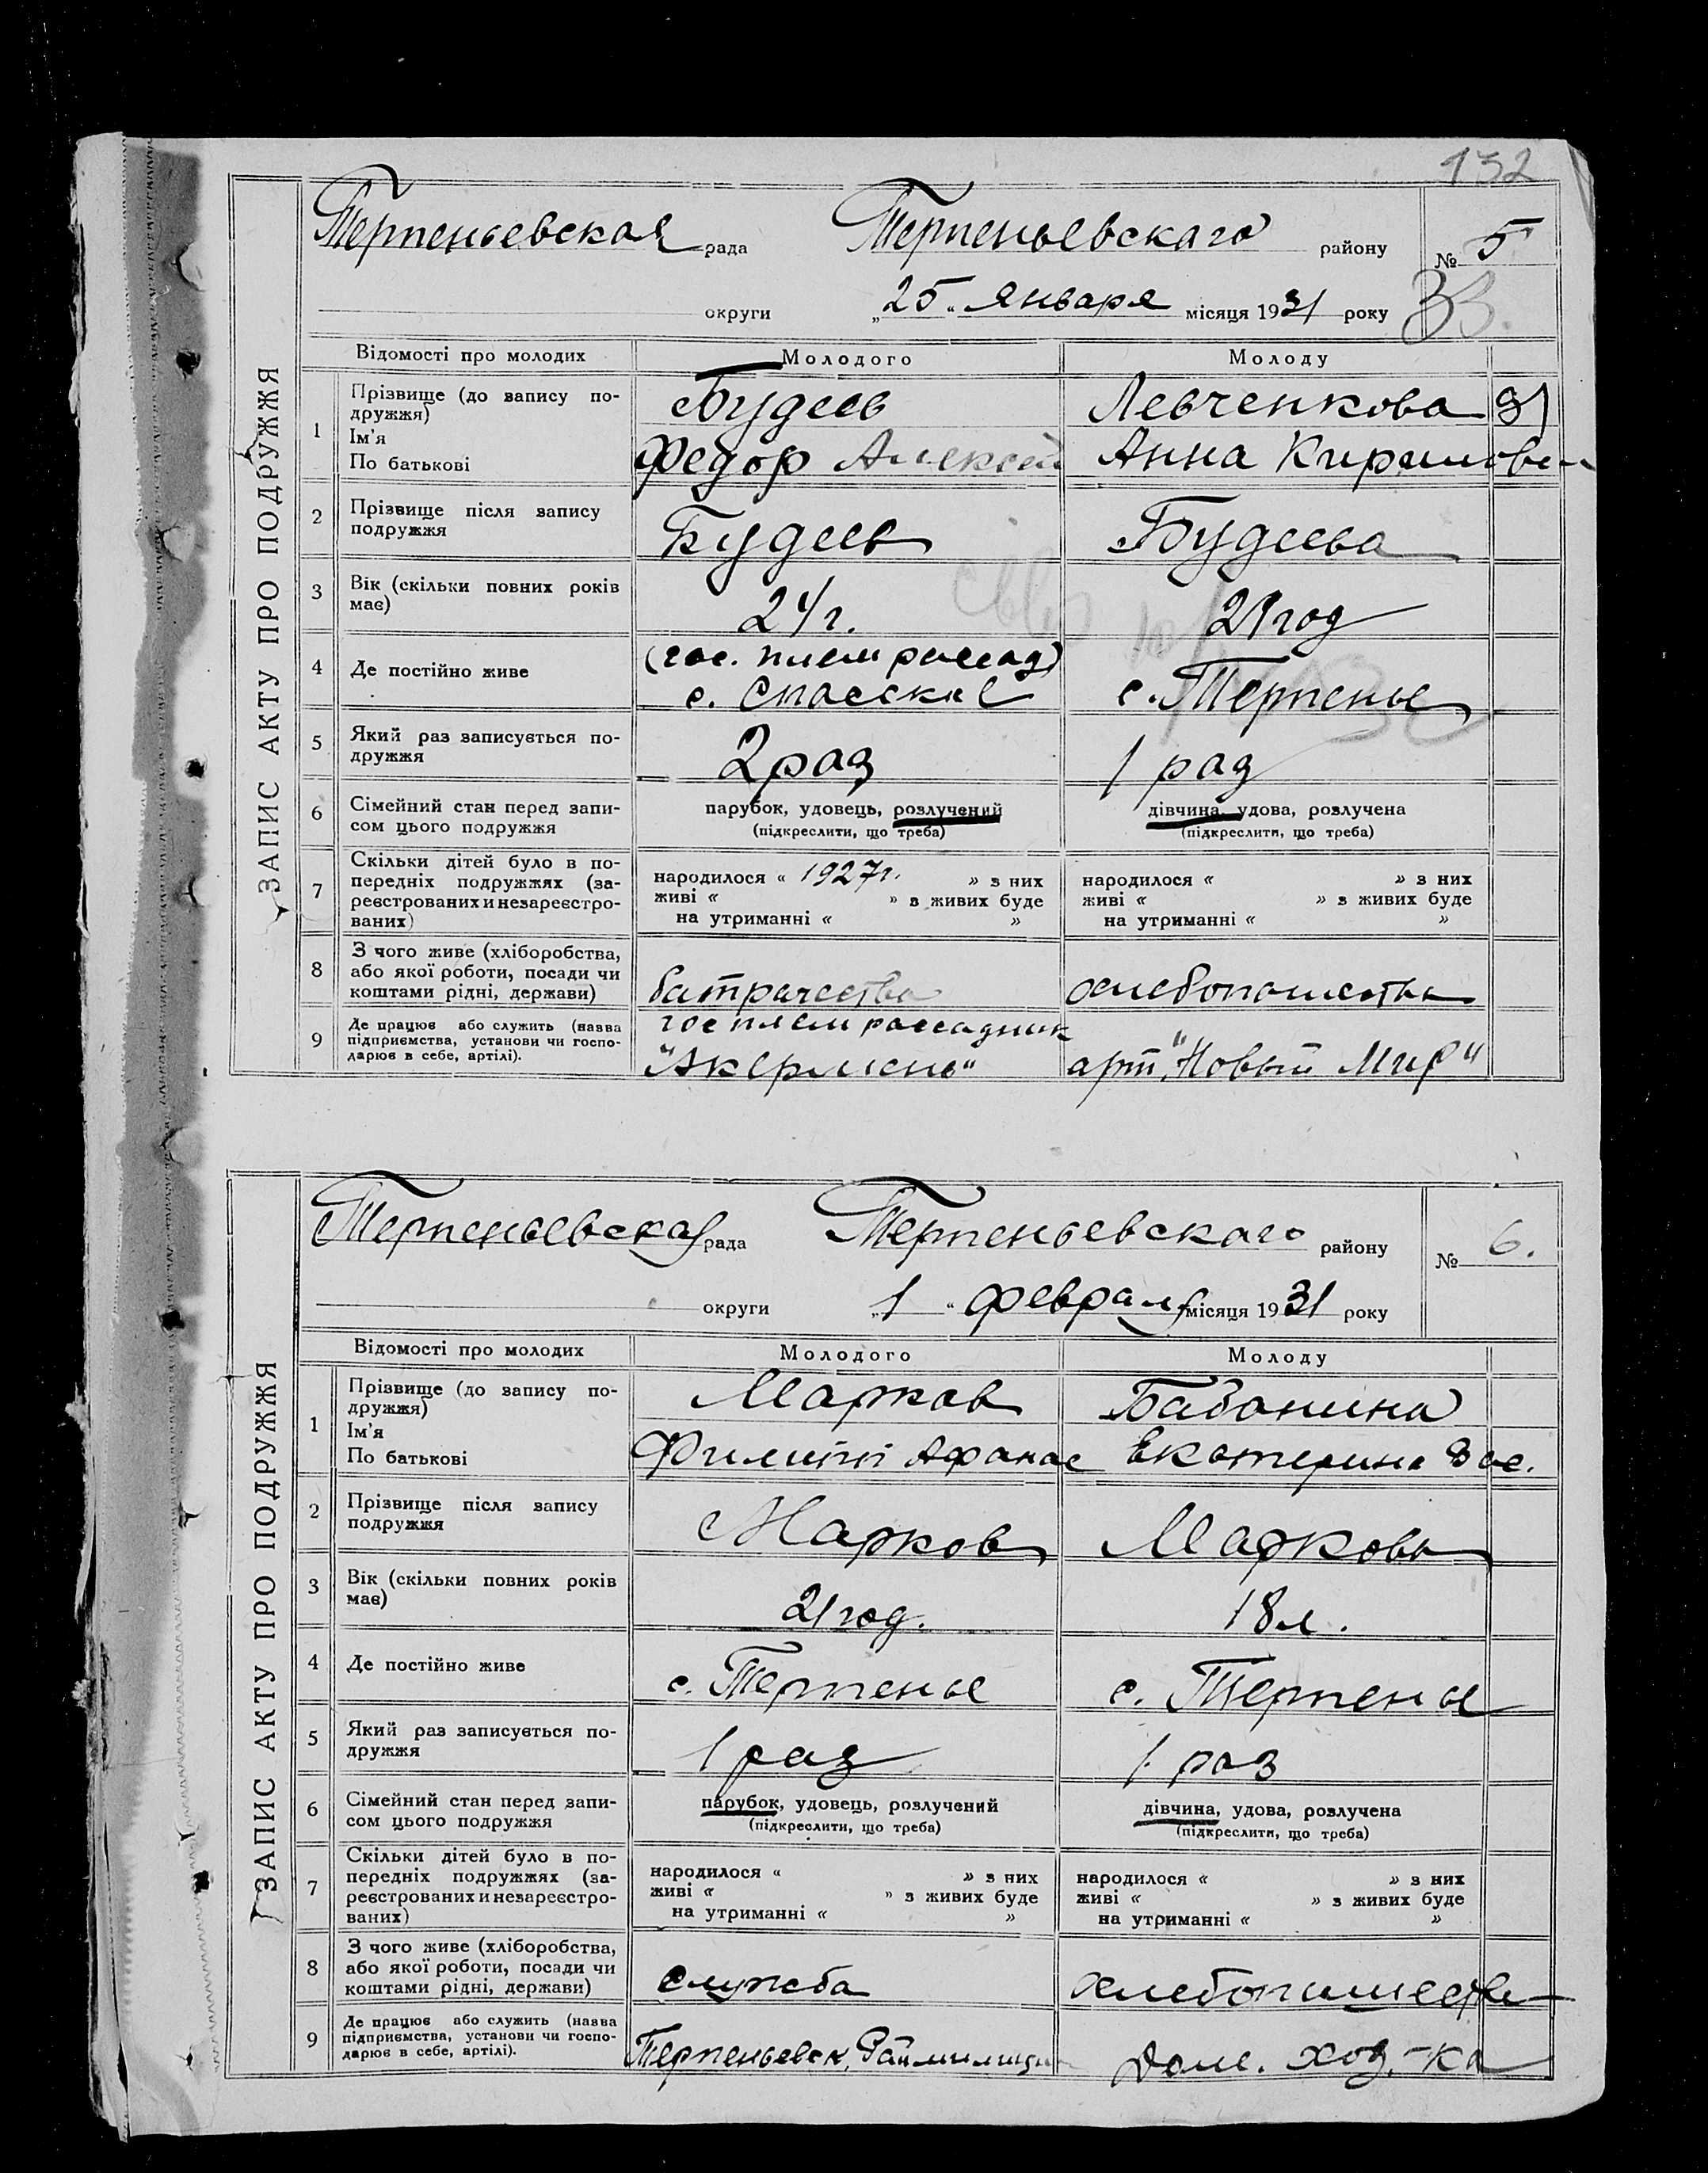 132
ЗАПИС АКТУ ПРО ПОДРУЖЖЯ
Терпеньевская рада Терпеньевскаго району № 5
округи „25“ Января місяця 1931 року 33.
Відомості про молодих Молодого Молоду
1 Прізвище (до запису подружжя) Будеев Левченкова
Ім'я По батькові Федор Алексей Анна Кирилловн
2 Прізвище після запису подружжя Будеев Будеева
3 Вік (скільки повних років має) 24 г. 21 год
4 Де постійно живе (гос. плем рассад) с. Спасское с. Терпенье
5 Який раз записується подружжя 2 раз 1 раз
6 Сімейний стан перед записом цього подружжя парубок, удовець, розлучений (підкреслити, що треба) дівчина, удова, розлучена (підкреслити, що треба)
7 Скільки дітей було в попередніх подружжях (зареєстрованих и незареєстрованих) народилося « 1927 г. » з них живі « » з живих буде на утриманні « » народилося « » з них живі « » з живих буде на утриманні « »
8 З чого живе (хліборобства, або якої роботи, посади чи коштами рідні, держави) батрачество хлебопашество
9 Де працює або служить (назва підприємства, установи чи господарює в себе, артілі). госплем рассадник "Акермень" арт. "Новый Мир"
ЗАПИС АКТУ ПРО ПОДРУЖЖЯ
Терпеньевская рада Терпеньевскаго району № 6.
округи „1“ февраля місяця 1931 року
Відомості про молодих Молодого Молоду
1 Прізвище (до запису подружжя) Марков Бабанина
Ім'я По батькові Филипп Афанас Екатерина Вас.
2 Прізвище після запису подружжя Марков Маркова
3 Вік (скільки повних років має) 21 год. 18 л.
4 Де постійно живе с. Терпенье с. Терпенье
5 Який раз записується подружжя 1 раз 1 раз
6 Сімейний стан перед записом цього подружжя парубок, удовець, розлучений (підкреслити, що треба) дівчина, удова, розлучена (підкреслити, що треба)
7 Скільки дітей було в попередніх подружжях (зареєстрованих и незареєстрованих) народилося « » з них живі « » з живих буде на утриманні « » народилося « » з них живі « » з живих буде на утриманні « »
8 З чого живе (хліборобства, або якої роботи, посади чи коштами рідні, держави) служба хлебопашество
9 Де працює або служить (назва підприємства, установи чи господарює в себе, артілі). Терпеньевск. Райммилиция Дом. хоз.-ка